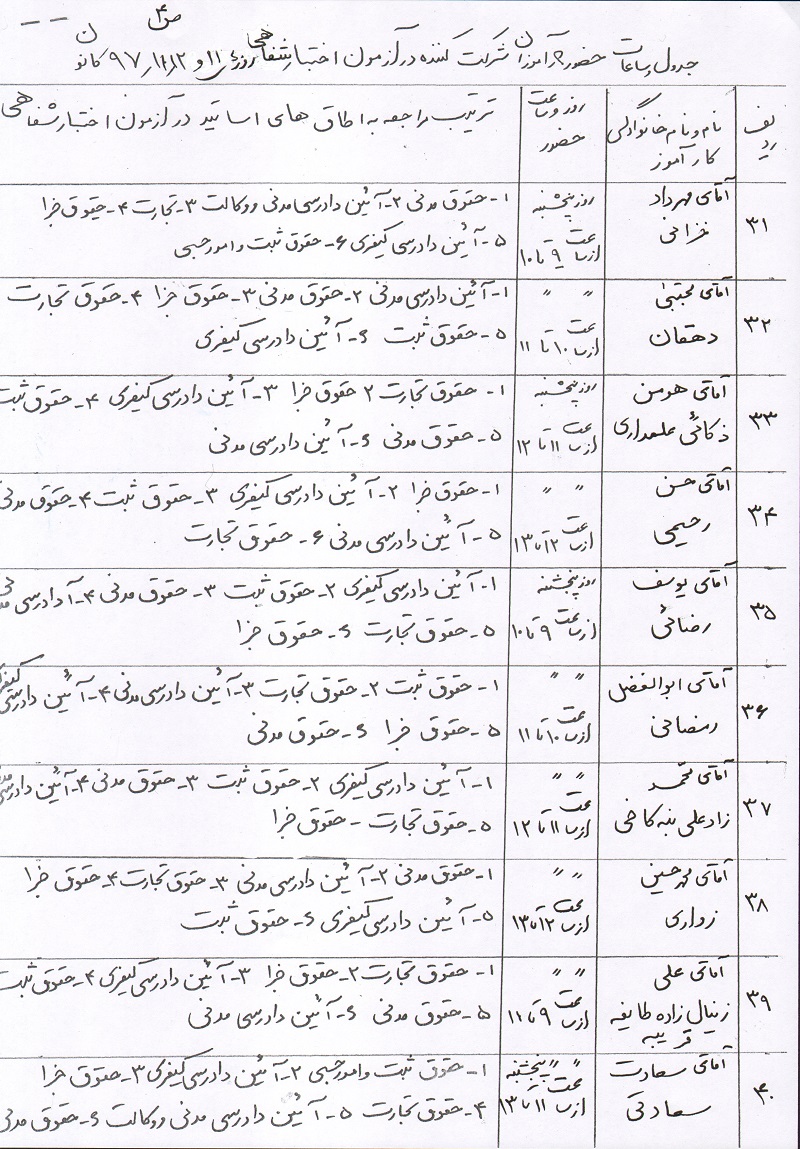 ص ۴
جدول ساعات حضور کارآموزان شرکت کننده در آزمون اختبار شفاهی روزهای ۱۱ و ۱۲ر۱۲ر۹۷ کانون
ردیف نام و نام خانوادگی کارآموز روز و ساعت حضور ترتیب مراجعه به اطاق های اساتید در آزمون اختبار شفاهی
۳۱ آقای مهرداد خزاعی روز پنجشنبه از ساعت ۹ تا ۱۰ ۱- حقوق مدنی ۲- آئین دادرسی مدنی و وکالت ۳- تجارت ۴- حقوق جزا
۵- آئین دادرسی کیفری ۶- حقوق ثبت و امور حسبی
۳۲ آقای مجتبی دهقان " " از ساعت ۱۰ تا ۱۱ ۱- آئین دادرسی مدنی ۲- حقوق مدنی ۳- حقوق جزا ۴- حقوق تجارت
۵- حقوق ثبت ۶- آئین دادرسی کیفری
۳۳ آقای هومن ذکائی علمداری روز پنجشنبه از ساعت ۱۱ تا ۱۲ ۱- حقوق تجارت ۲ حقوق جزا ۳- آئین دادرسی کیفری ۴- حقوق ثبت
۵- حقوق مدنی ۶- آئین دادرسی مدنی
۳۴ آقای حسن رحیمی " " از ساعت ۱۲ تا ۱۳ ۱- حقوق جزا ۲- آئین دادرسی کیفری ۳- حقوق ثبت ۴- حقوق مدنی
۵- آئین دادرسی مدنی ۶- حقوق تجارت
۳۵ آقای یوسف رضائی روز پنجشنبه از ساعت ۹ تا ۱۰ ۱- آئین دادرسی کیفری ۲- حقوق ثبت ۳- حقوق مدنی ۴- آ دادرسی مدنی
۵- حقوق تجارت ۶- حقوق جزا
۳۶ آقای ابوالفضل رمضانی " " از ساعت ۱۰ تا ۱۱ ۱- حقوق ثبت ۲- حقوق تجارت ۳- آئین دادرسی مدنی ۴- آئین دادرسی کیفری
۵- حقوق جزا ۶- حقوق مدنی
۳۷ آقای محمد زادعلی " " از ساعت ۱۱ تا ۱۲ ۱- آئین دادرسی کیفری ۲- حقوق ثبت ۳- حقوق مدنی ۴- آئین دادرسی مدنی
۵- حقوق تجارت - حقوق جزا
۳۸ آقای محمدحسین زواری " " از ساعت ۱۲ تا ۱۳ ۱- حقوق مدنی ۲- آئین دادرسی مدنی ۳- حقوق تجارت ۴- حقوق جزا
۵- آئین دادرسی کیفری ۶- حقوق ثبت
۳۹ آقای علی زینال زاده طایفه قریبه " " از ساعت ۹ تا ۱۱ ۱- حقوق تجارت ۲- حقوق جزا ۳- آئین دادرسی کیفری ۴- حقوق ثبت
۵- حقوق مدنی ۶- آئین دادرسی مدنی
۴۰ آقای سعادت سعادتی " " پنجشنبه از ساعت ۱۱ تا ۱۳ ۱- حقوق ثبت و امور حسبی ۲- آئین دادرسی کیفری ۳- حقوق جزا
۴- حقوق تجارت ۵- آئین دادرسی مدنی و وکالت ۶- حقوق مدنی